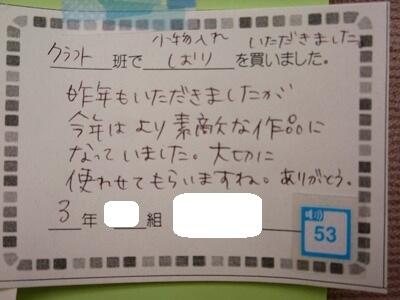 小物入れ いただきました
クラフト班でしおりを買いました。
昨年もいただきましたが
今年はより素敵な作品に
なっていました。大切に
使わせてもらいますね。ありがとう。
3年 組
53